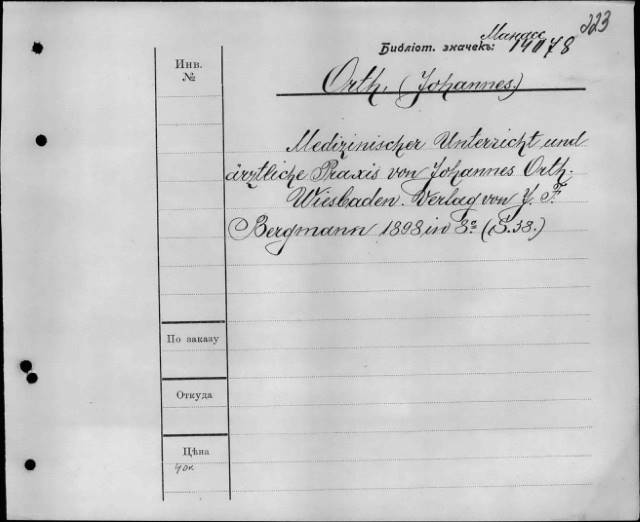 223
Манасс
Библіот. значекъ: 14078
Инв.
№
Orth. (Johannes.)
Medizinischer Unterricht und
ärztliche Praxis von Johannes Orth.
Wiesbaden. Verlag von J. F.
Bergmann 1898 in 8º. (S. 38.)
По заказу
Откуда
Цѣна
40к